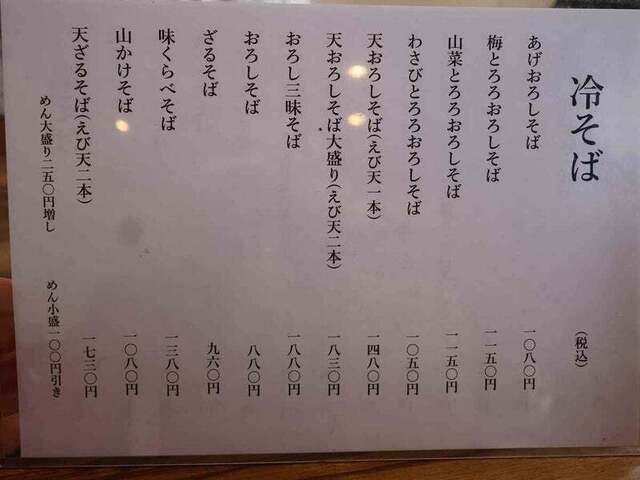 冷そば
（税込）
あげおろしそば 一〇八〇円
梅とろろおろしそば 一一五〇円
山菜とろろおろしそば 一一五〇円
わさびとろろおろしそば 一〇五〇円
天おろしそば（えび天一本） 一四八〇円
天おろしそば大盛り（えび天二本） 一八三〇円
おろし三味そば 一一八〇円
おろしそば 八八〇円
ざるそば 九六〇円
味くらべそば 一三八〇円
山かけそば 一〇八〇円
天ざるそば（えび天二本） 一七三〇円
めん大盛り二五〇円増し めん小盛一〇〇円引き